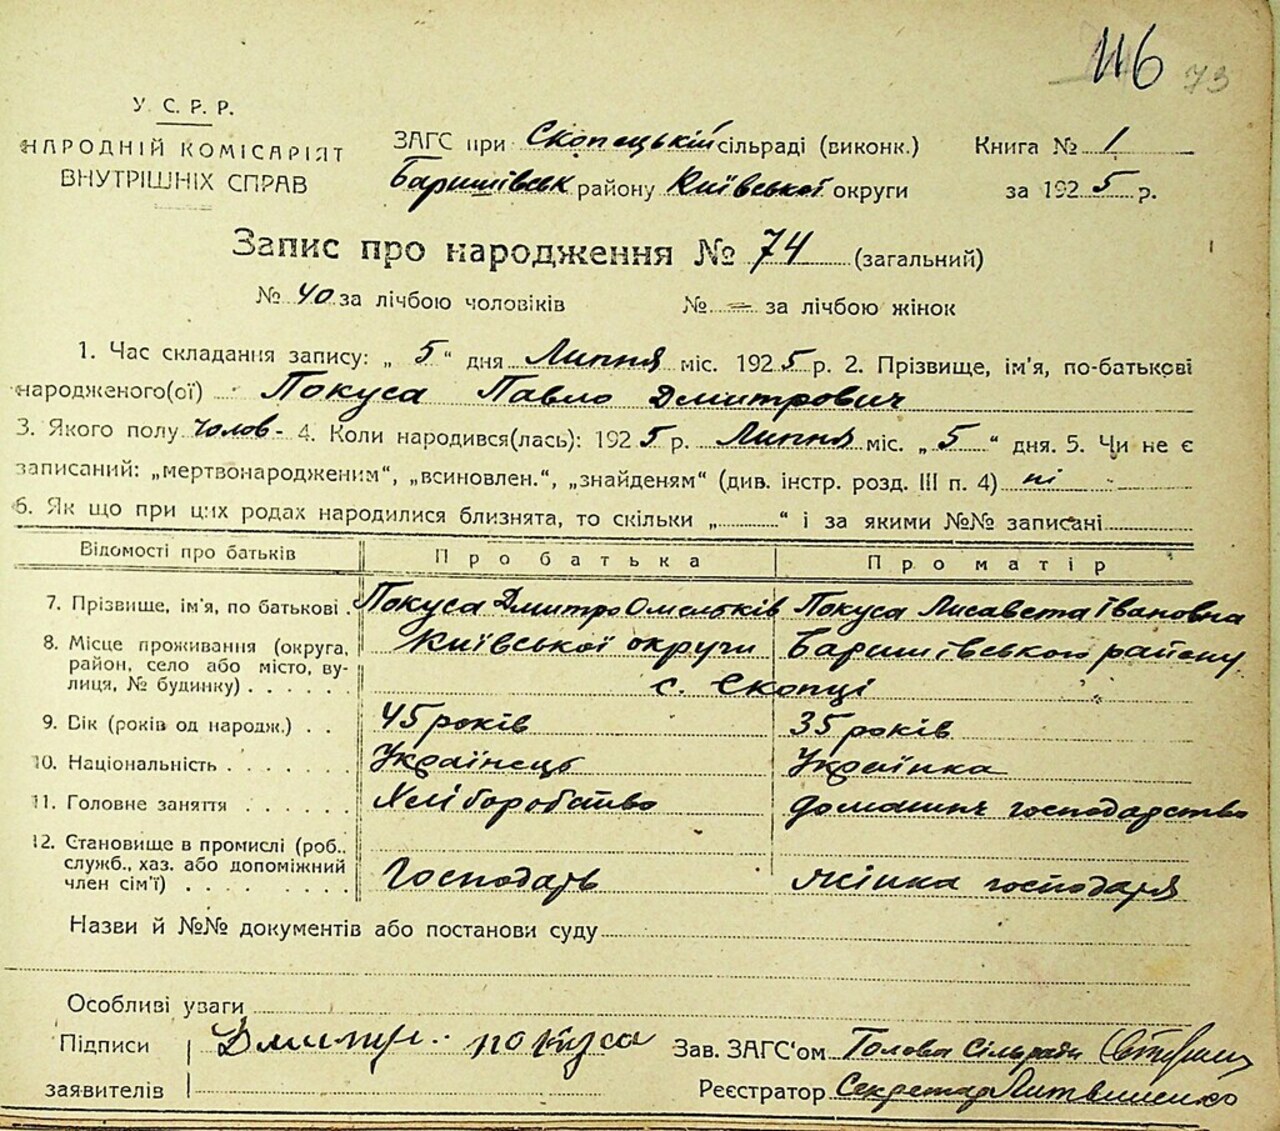 116 73
У. С. Р. Р.
НАРОДНІЙ КОМІСАРІЯТ
ВНУТРІШНІХ СПРАВ
ЗАГС при Скопецькій сільраді (виконк.) Книга № 1
Баришівськ району Київської округи за 1925 р.
Запис про народження № 74 (загальний)
№ 40 за лічбою чоловіків № — за лічбою жінок
1. Час складання запису: „ 5 “ дня Липня міс. 1925 р. 2. Прізвище, ім'я, по-батькові
народженого(ої) Покуса Павло Дмитрович
3. Якого полу чолов- 4. Коли народився(лась): 1925 р. Липня міс. „ 5 “ дня. 5. Чи не є
записаний: „мертвонародженим“, „всиновлен.“, „знайденям“ (див. інстр. розд. III п. 4) ні
6. Як що при цих родах народилися близнята, то скільки „..........“ і за якими №№ записані
Відомості про батьків Про батька Про матір
7. Прізвище, ім'я, по батькові . Покуса Дмитро Омельків Покуса Лисавета Івановна
8. Місце проживання (округа, Київської округи Баришівського району
район, село або місто, ву-
лиця, № будинку) . . . . . . с. Скопці
9. Вік (років од народж.) . . 45 років 35 років
10. Національність . . . . . . . Українець Українка
11. Головне заняття . . . . . . Хліборобство домашнє господарство
12. Становище в промислі (роб.,
служб., хаз. або допоміжний
член сім'ї) . . . . . . . . . Господарь жінка господаря
Назви й №№ документів або постанови суду
Особливі уваги
Підписи Дмитр.. покуса Зав. ЗАГС'ом Голова Сільради
заявителів Реєстратор Секретар Литвиненко